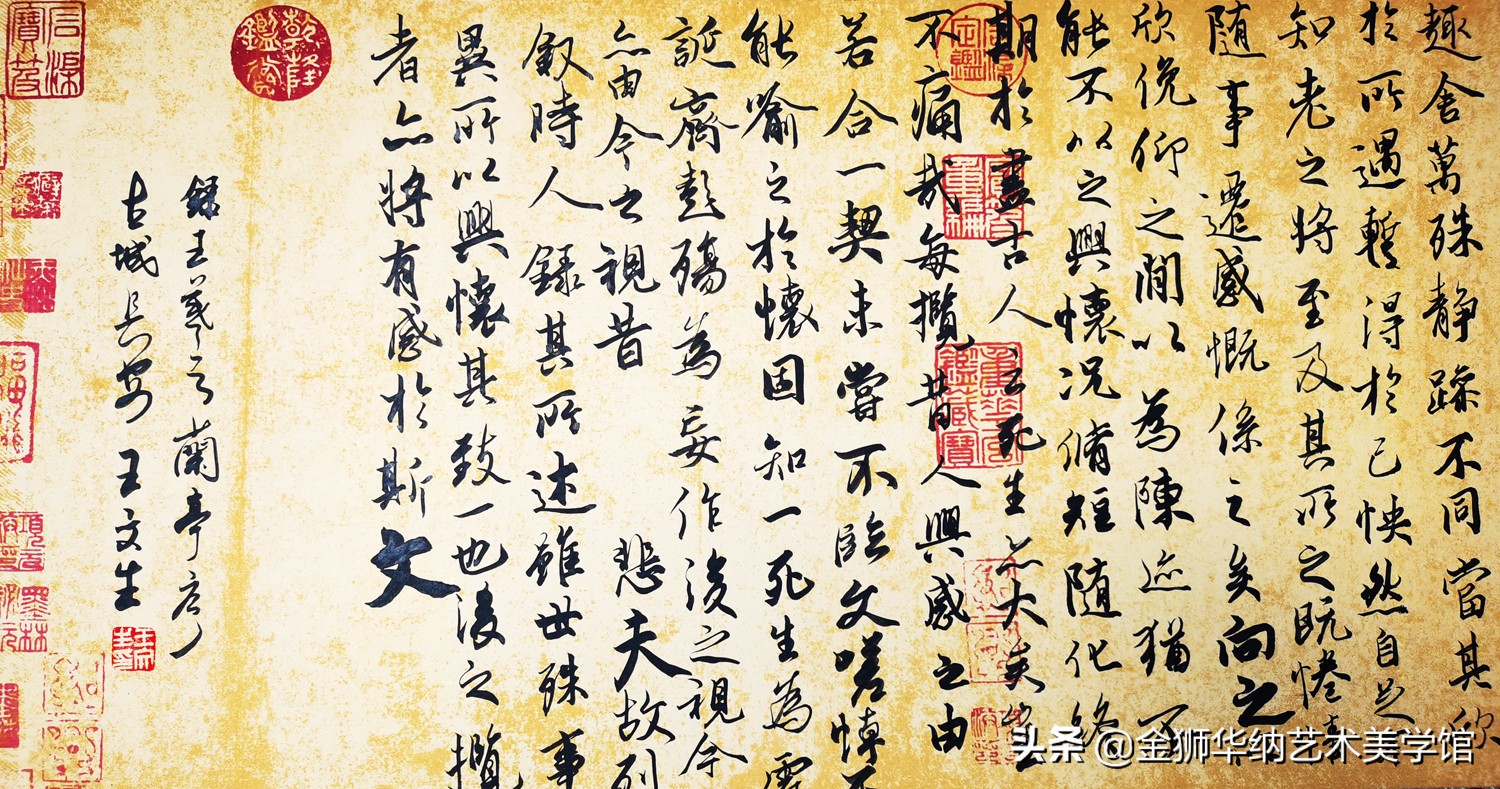 趣舍萬殊静躁不同當其欣
於所遇暫得於己怏然自足
知老之将至及其所之既惓
随事遷感慨係之矣向之
欣俛仰之閒以為陳迹猶不
能不以之興懷况脩短随化終
期於盡古人云死生亦大矣
不痛哉每攬昔人興感之由
若合一契未嘗不臨文嗟悼不
能喻之於懷固知一死生為虚
誕齊彭殤為妄作後之視今
亦由今之視昔悲夫故列
叙時人録其所述雖世殊事
異所以興懷其致一也後之攬
者亦將有感於斯文
録王羲之蘭亭序
古城長安王文生
头条 @金狮华纳艺术美学馆